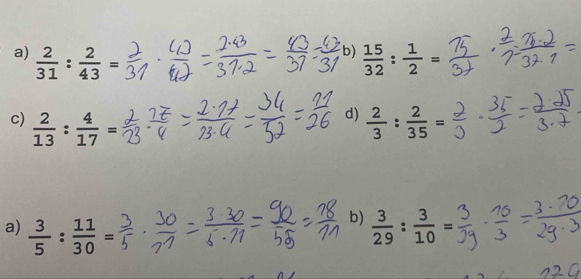 a) 2/31 : 2/43 = 2/31 · 43/2 = 2·43/31·2 = 43/31 = 43/31 b) 15/32 : 1/2 = 15/32 · 2/1 = 15·2/32·1 =
c) 2/13 : 4/17 = 2/13 · 17/4 = 2·17/13·4 = 34/52 = 17/26 d) 2/3 : 2/35 = 2/3 · 35/2 = 2·35/3·2 =
a) 3/5 : 11/30 = 3/5 · 30/11 = 3·30/5·11 = 90/55 = 18/11 b) 3/29 : 3/10 = 3/29 · 10/3 = 3·10/29·3